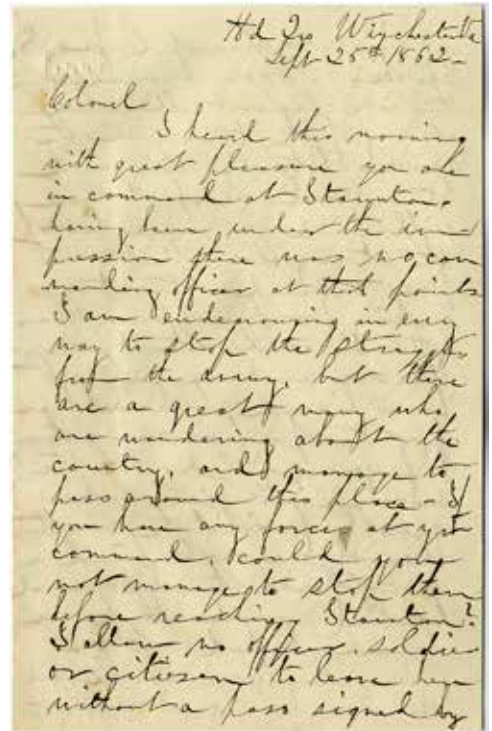 Hd Qrs Winchester Va
Sept 25th 1862 -
Colonel
I heard this morning
with great pleasure you are
in command at Staunton,
having been under the im
pression there was no com
manding officer at that point.
I am endeavouring in every
way to stop the stragglers
from the army, but there
are a great many who
are wandering about the
country, and manage to
pass around this place - If
you have any forces at your
command, could you
not manage to stop them
before reaching Staunton?
I allow no officer, soldier
or citizen to leave here
without a pass signed by